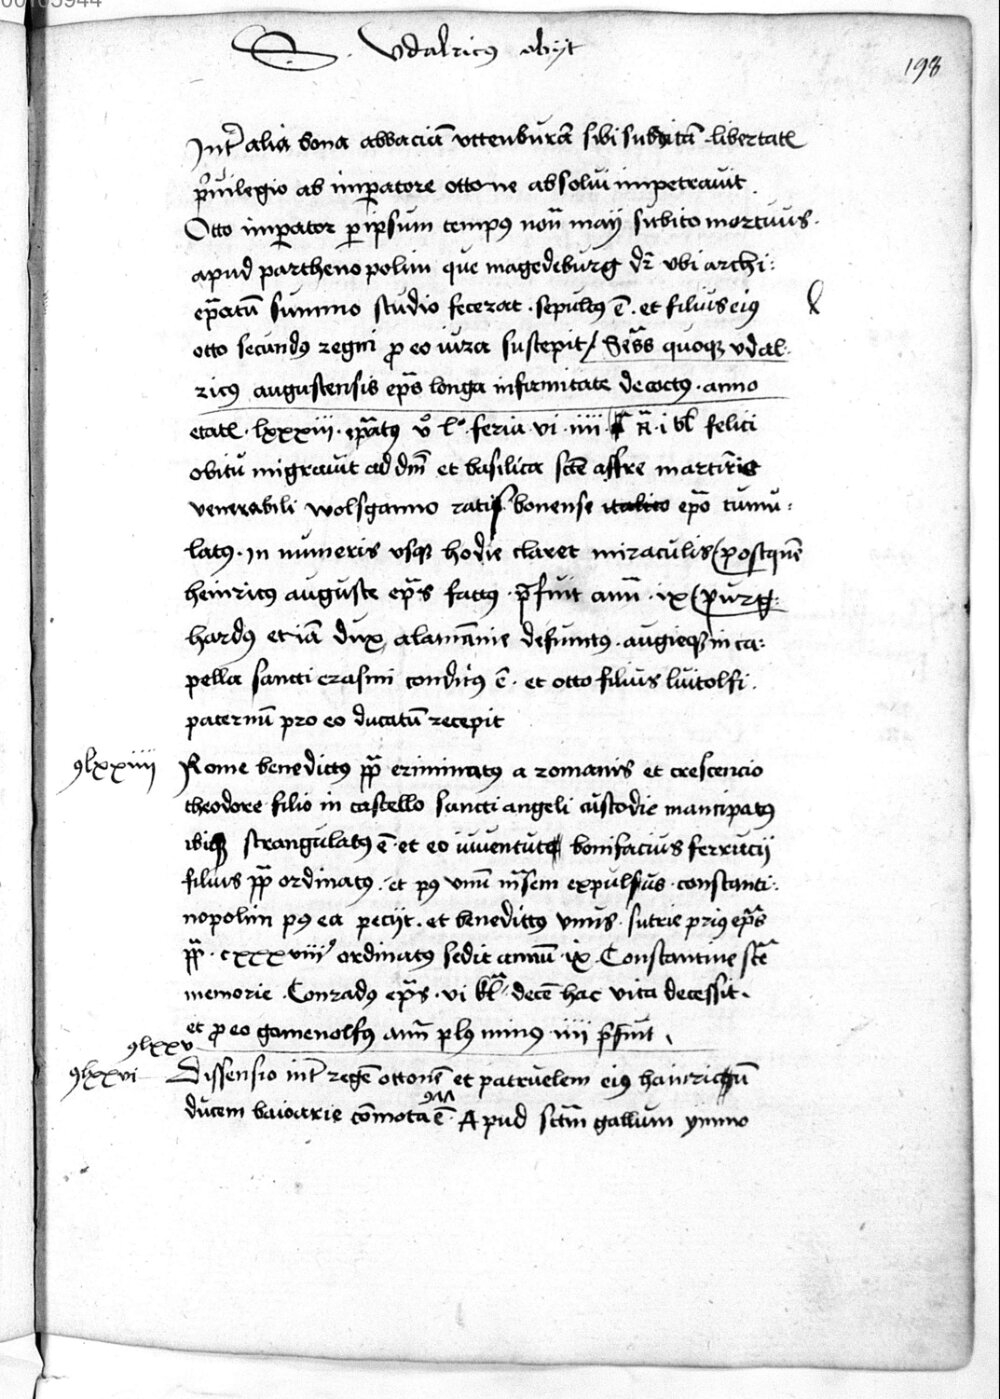 S. Vdalricus obijt
198
Inter alia bona abbaciam vttenburam sibi subditam libertatis
priuilegio ab imperatore ottone absolui impetrauit.
Otto imperator per ipsum tempus non maij subito mortuus.
apud parthenopolim que magedeburg dr vbi archi:
epatum summo studio fecerat. sepultus e. et filius eius
otto secundus regni pro eo iura suscepit/ Scss quoque vdal:
ricus augustensis eps longa infirmitate decoctus. anno
etatis. lxxxiii. epatus vo l. feria vi. iiii . i kl felici
obitu migrauit ad dm et basilica scte affre martiris
venerabili wolfganno ratisbonense epo tumu:
latus. in numeris vsque hodie claret miraculis (postquem
heinricus auguste eps factus. prefuit ann. ix (purg:
hardus etiam dux alamannie defunctus. augieque in ca:
pella sancti erasmi conditus e. et otto filius luitolfi.
paternum pro eo ducatum recepit
9lxxiiii Rome benedictus pp criminatus a romanis et crescencio
theodore filio in castello sancti angeli custodie mancipatus
ibique strangulatus e. et eo iuuentute bonifacius ferrucij
filius pp ordinatus. et post vnum mensem expulsus. constanti:
nopolim post ea pecijt. et benedictus vnus. sutrie prius eps
pp. cxxxviii ordinatus sedit annum. ix. Constantine scte
memorie. Conradus eps. vi kl. decem hac vita decessit.
et pro eo gamenolfus ann plus minus iiii prefuit.
9lxxv
9lxxvi Dissensio inter regem ottonem et patruelem eius hainricum
ducem baioarie commota e. Apud sctm gallum ymmo